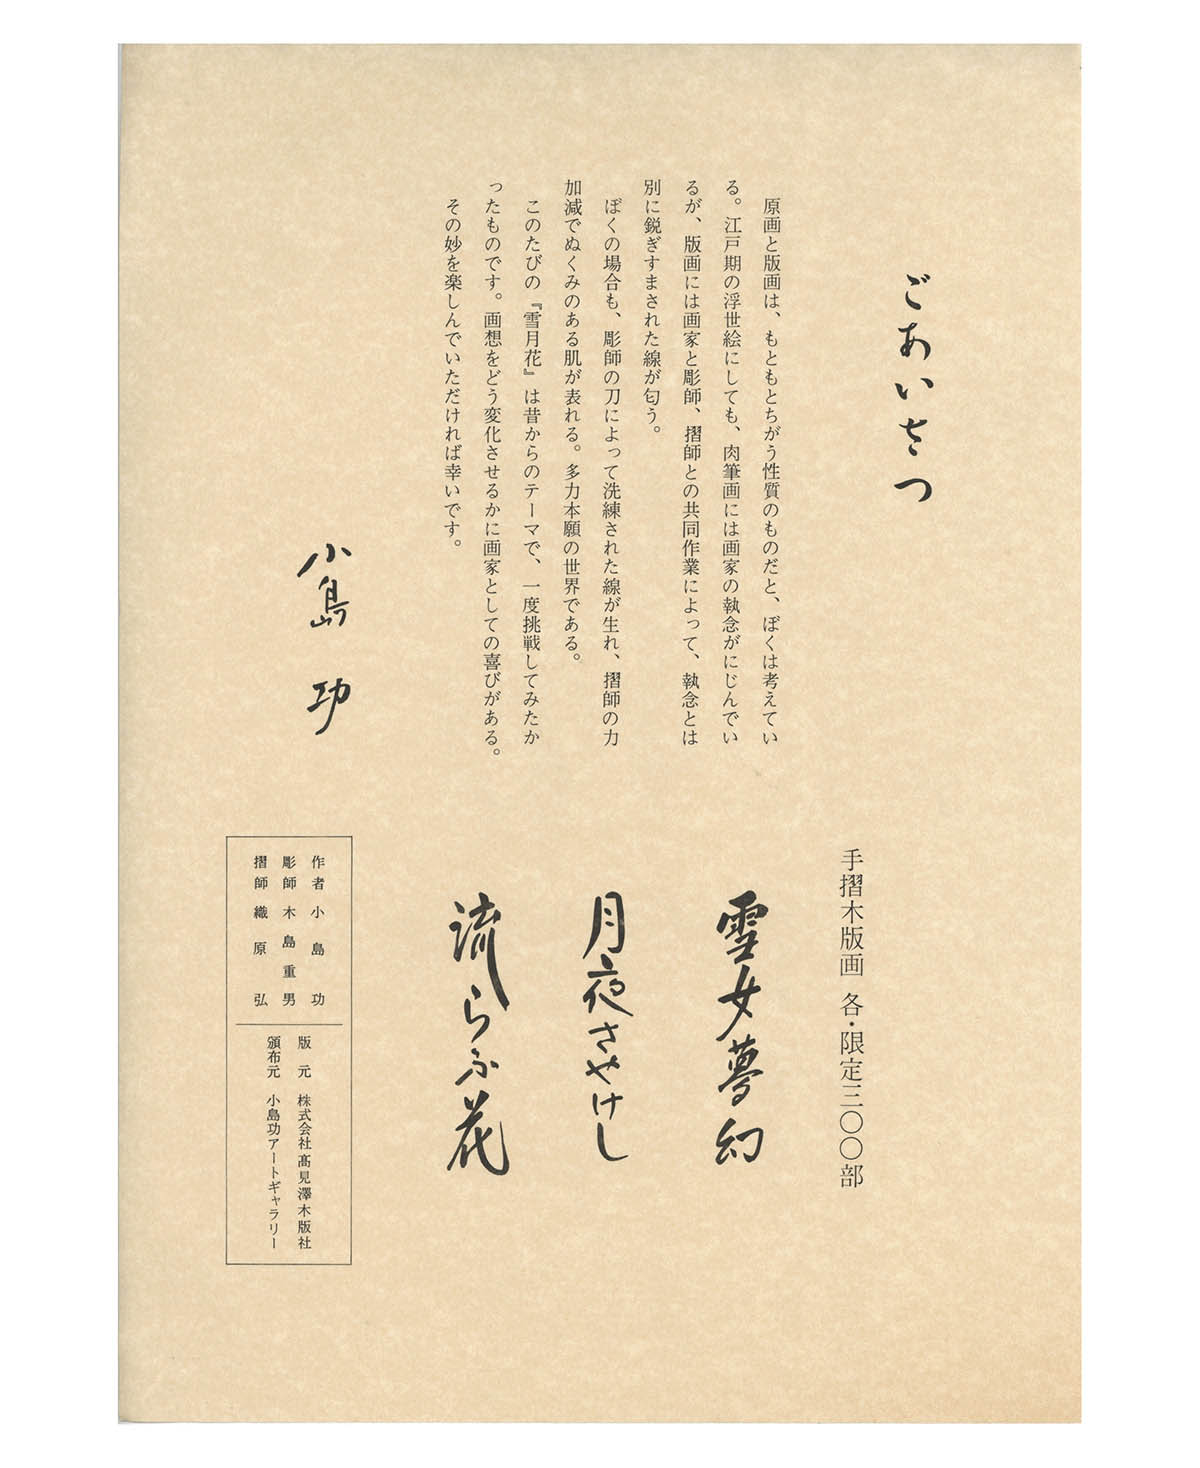 ごあいさつ
原画と版画は、もともとちがう性質のものだと、ぼくは考えてい
る。江戸期の浮世絵にしても、肉筆画には画家の執念がにじんでい
るが、版画には画家と彫師、摺師との共同作業によって、執念とは
別に鋭ぎすまされた線が匂う。
ぼくの場合も、彫師の刀によって洗練された線が生れ、摺師の力
加減でぬくみのある肌が表れる。多力本願の世界である。
このたびの『雪月花』は昔からのテーマで、一度挑戦してみたか
ったものです。画想をどう変化させるかに画家としての喜びがある。
その妙を楽しんでいただければ幸いです。
小島功
手摺木版画 各・限定三〇〇部
雪女夢幻
月夜さやけし
流らふ花
作者 小島功
彫師 木島重男
摺師 織原弘
版元 株式会社高見澤木版社
頒布元 小島功アートギャラリー